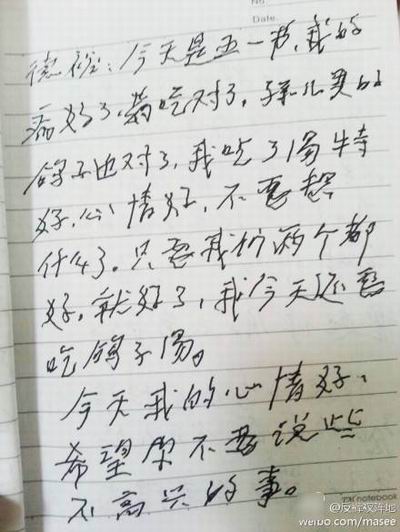 No.
Date.
德裕:今天是五一节,我的
病好了,药吃对了,孙儿买的
鸽子也对了,我吃了汤特
好,心情好,不要想
什么了。只要我们两个都
好,就好了,我今天还要
吃鸽子汤。
今天我的心情好、
希望你不要说些
不高兴的事。
notebook
@反裤衩阵地
weibo.com/masee